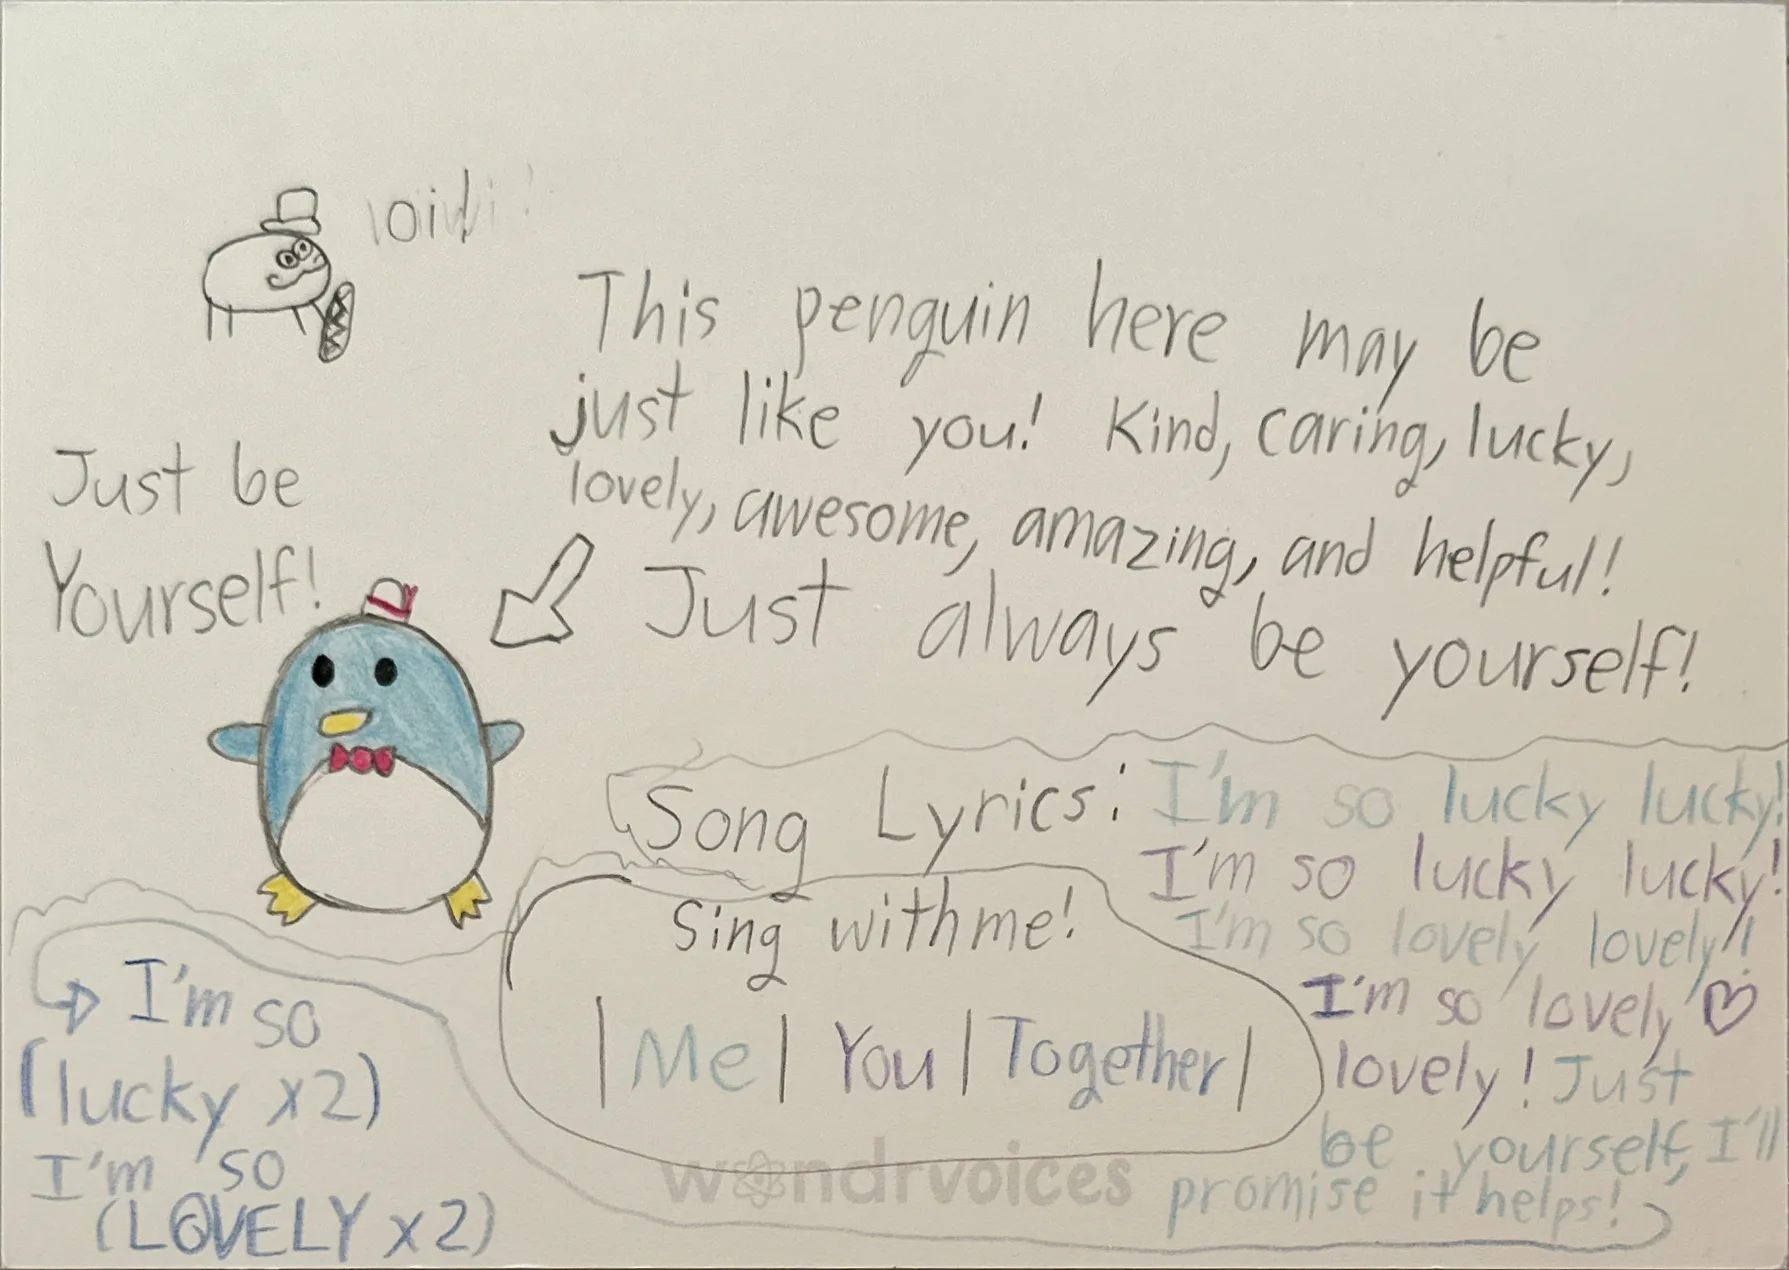 This penguin here may be
just like you! Kind, caring, lucky,
lovely, awesome, amazing, and helpful!
Just always be yourself!
Just be
Yourself!
Song Lyrics:
I'm so lucky lucky!
I'm so lucky lucky!
I'm so lovely lovely!
I'm so lovely
lovely! Just
be yourself, I'll
promise it helps!
Sing with me!
|Me| You | Together |
I'm so
(lucky x2)
I'm so
(LOVELY x2)
wondrvoices